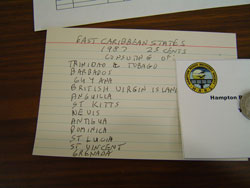 EAST CARIBBEAN STATES
1987 25 CENTS
CONSISTS OF
TRINIDAD & TOBAGO
BARBADOS
GUYANA
BRITISH VIRGIN ISLAN
ANGUILLA
ST KITTS
NEVIS
ANTIGUA
DOMINICA
ST LUCIA
ST VINCENT
GRENADA
Hampton